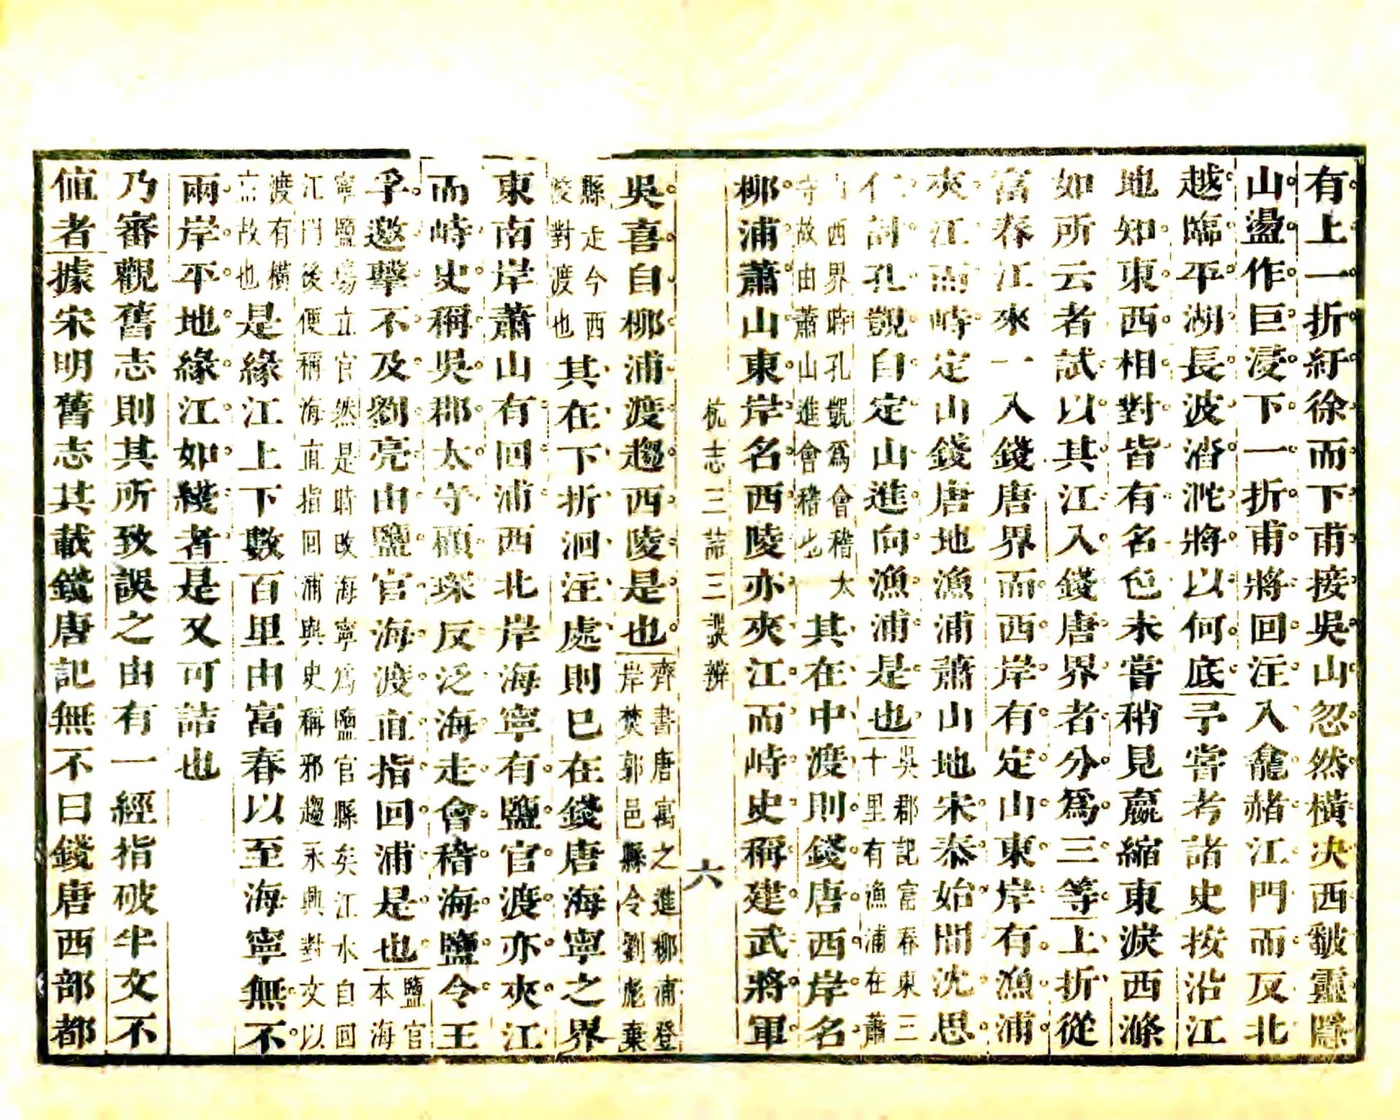 有上一折紆徐而下甫接吳山忽然橫决西皺靈隱
山盪作巨浸下一折甫將回注入龕赭江門而反北
越臨平湖長波滔沱將以何底予嘗考諸史按沿江
地知東西相對皆有名色未嘗稍見嬴縮東淚西滌
如所云者試以其江入錢唐界者分爲三等上折從
富春江來一入錢唐界而西岸有定山東岸有漁浦
夾江而峙定山錢唐地漁浦蕭山地宋泰始間沈思
仁討孔覬自定山進向漁浦是也吳郡記富春東三十里有漁浦在蕭
山西界時孔覬爲會稽太守故由蕭山進會稽也其在中渡則錢唐西岸名
柳浦蕭山東岸名西陵亦夾江而峙史稱建武將軍
杭志三詰三誤辨 六
吳喜自柳浦渡趨西陵是也齊書唐寓之進柳浦登岸焚郭邑縣令劉彪棄
縣走今西對渡也其在下折洄注處則已在錢唐海寧之界
東南岸蕭山有回浦西北岸海寧有鹽官渡亦夾江
而峙史稱吳郡太守顧琛反泛海走會稽海鹽令王
孚邀擊不及劉亮由鹽官海渡直指回浦是也鹽官本海
寧鹽場立官然是時改海寧爲鹽官縣矣江水自回江門後便稱海直指回浦與史稱邪趨永興對文以
渡有橫直故也是緣江上下數百里由富春以至海寧無不
兩岸平地緣江如綫者是又可詰也
乃審觀舊志則其所致誤之由有一經指破半文不
值者據宋明舊志其載錢唐記無不曰錢唐西部都